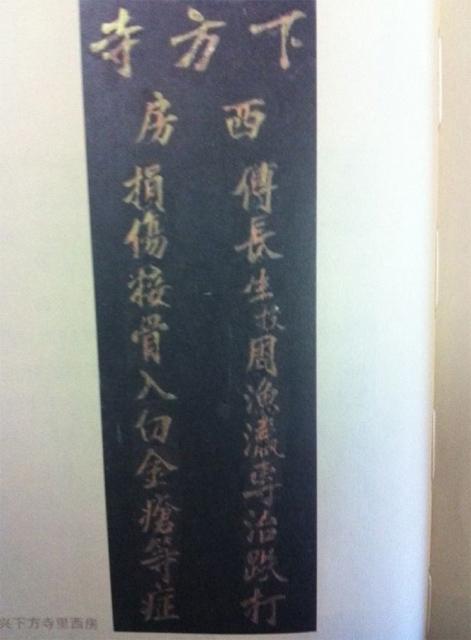 下方寺
西房
傅長生授周漁瀛專治跌打
損傷接骨入臼金瘡等症
兴下方寺里西房